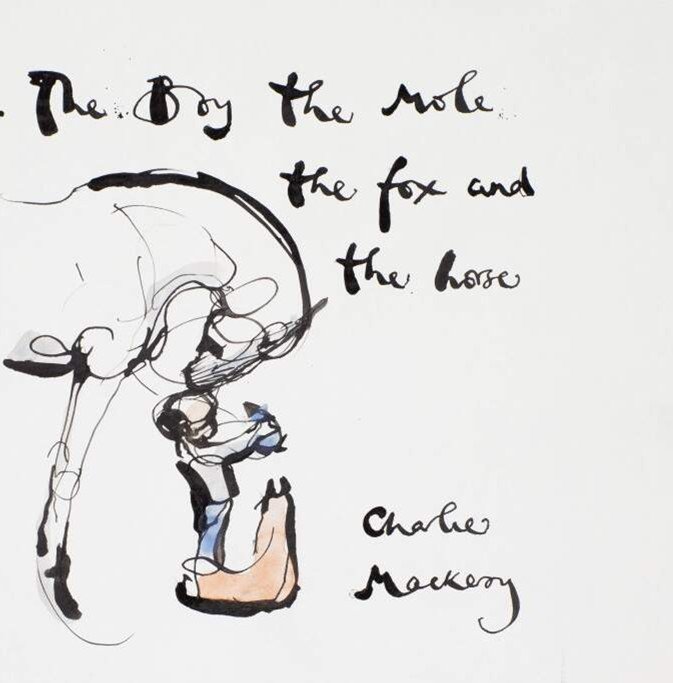 The Boy the Mole
the fox and
the horse
Charlie
Mackesy